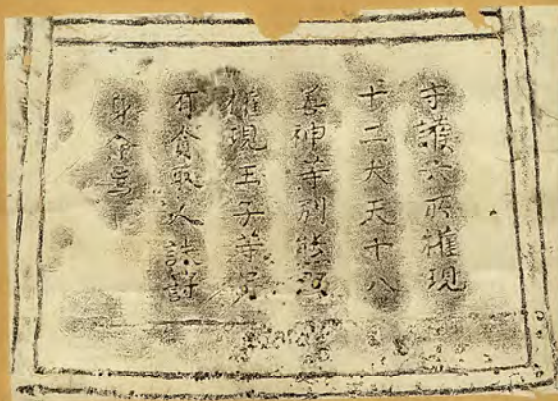 守護六所權現
十二大天十八
善神等別熊野
權現王子等若
有貪取人誅討
身命焉